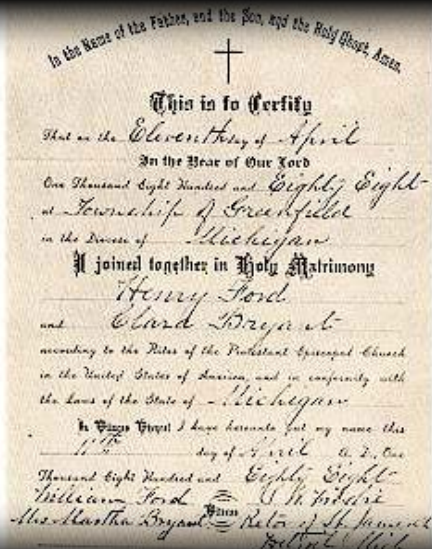 In the Name of the Father, and the Son, and the Holy Ghost, Amen.
This is to Certify
That on the Eleventh day of April
In the Year of Our Lord
One Thousand Eight Hundred and Eighty Eight
at Township of Greenfield
in the Diocese of Michigan
I joined together in Holy Matrimony
Henry Ford
and Clara Bryant
according to the Rites of the Protestant Episcopal Church
in the United States of America, and in conformity with
the Laws of the State of Michigan
In Witness Whereof I have hereunto put my name this
11th day of April A. D. One
Thousand Eight Hundred and Eighty Eight
William Ford
Witness
Mrs Martha Bryant Rector of St. James Ch
Detroit Mich